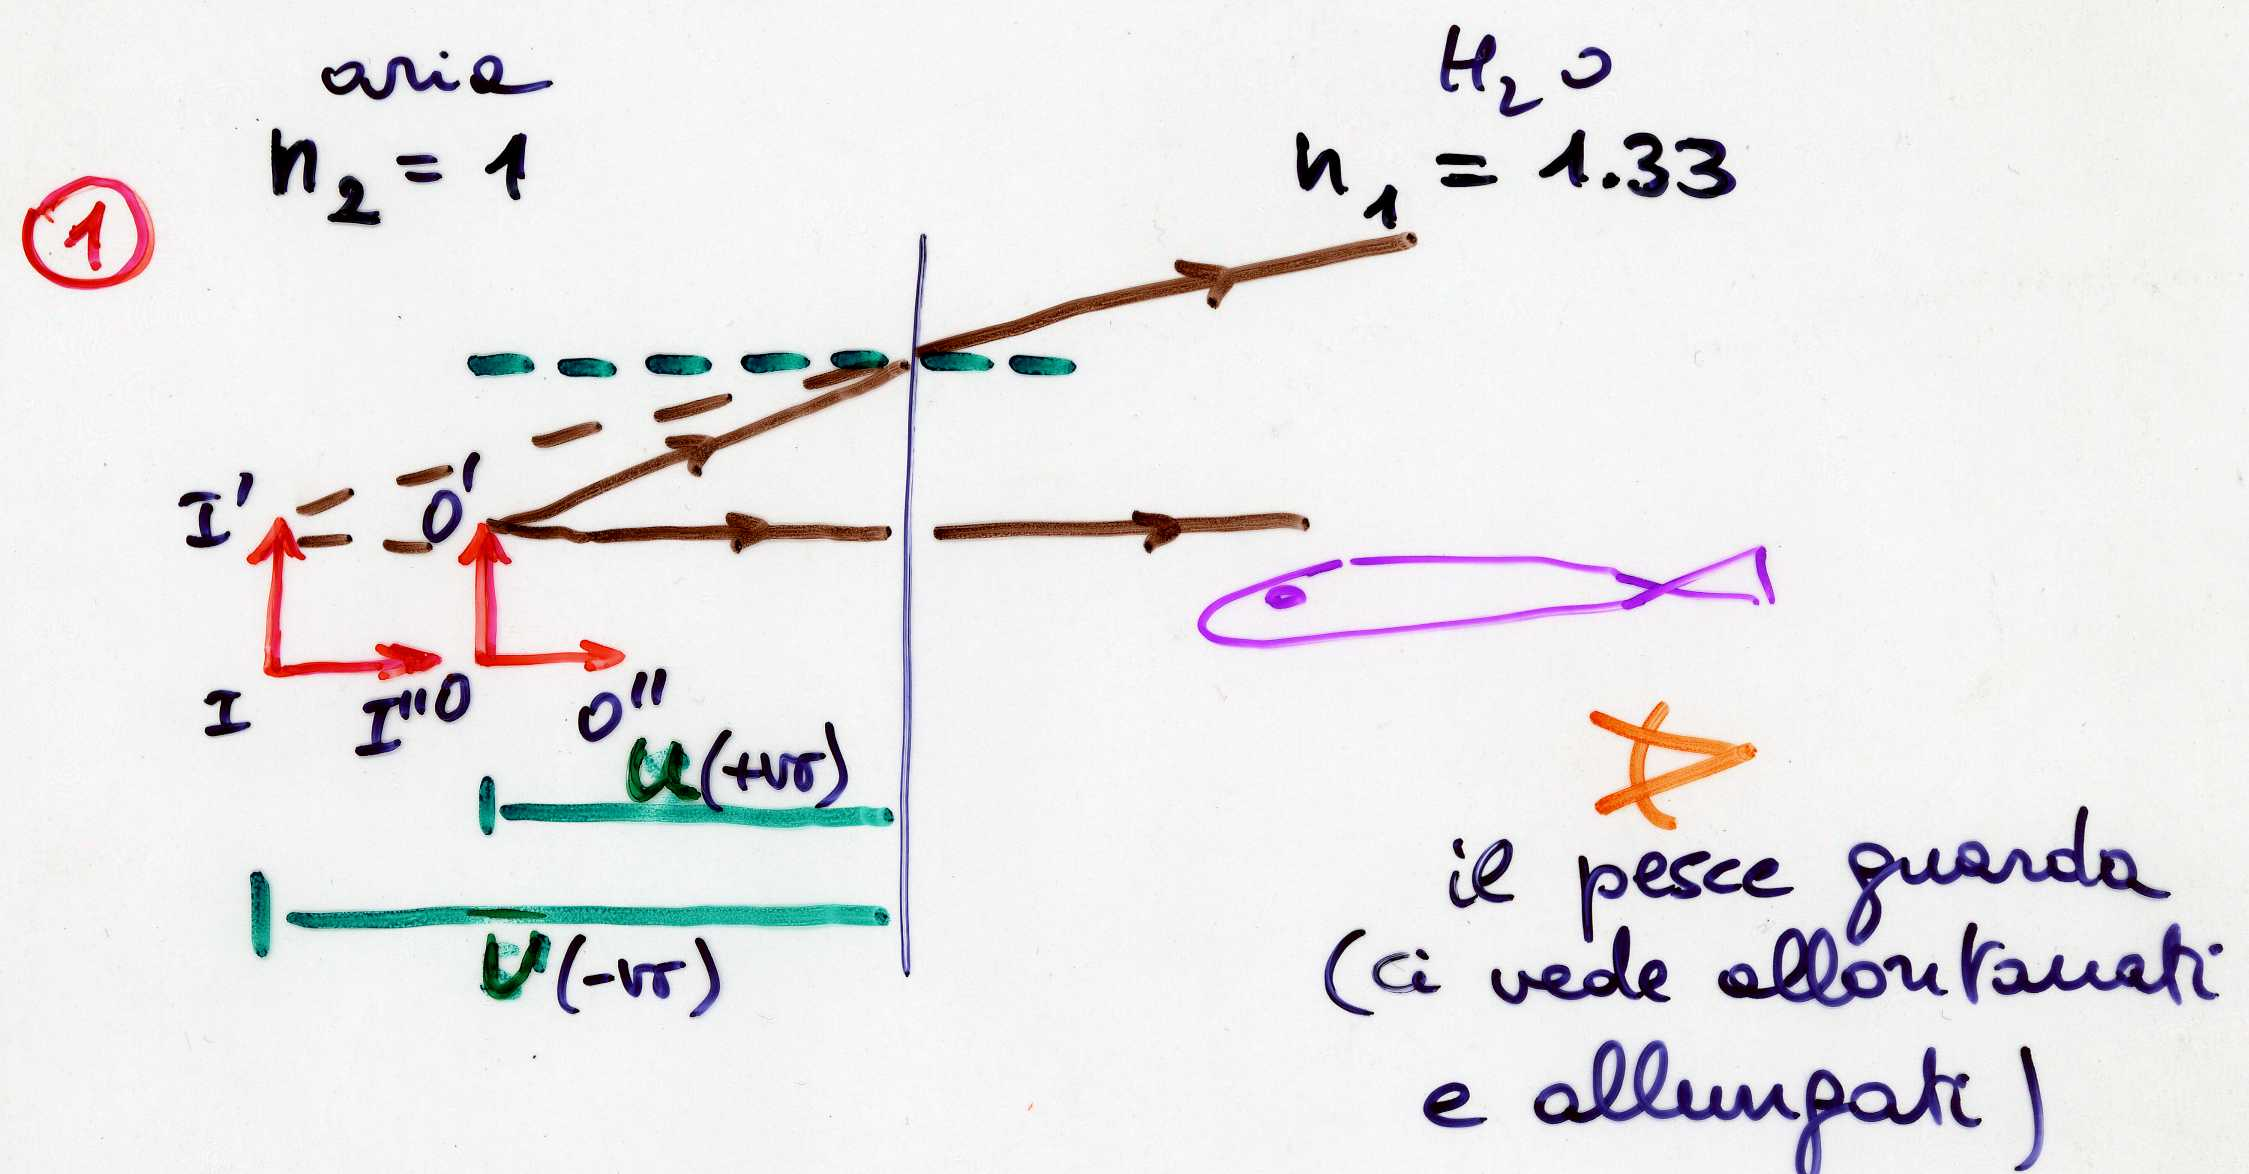 aria
H₂O
n₂ = 1
n₁ = 1.33
1
I'
O'
I
I"
O
O"
u (+ve)
v (-ve)
il pesce guarda
(ci vede allontanati
e allungati)